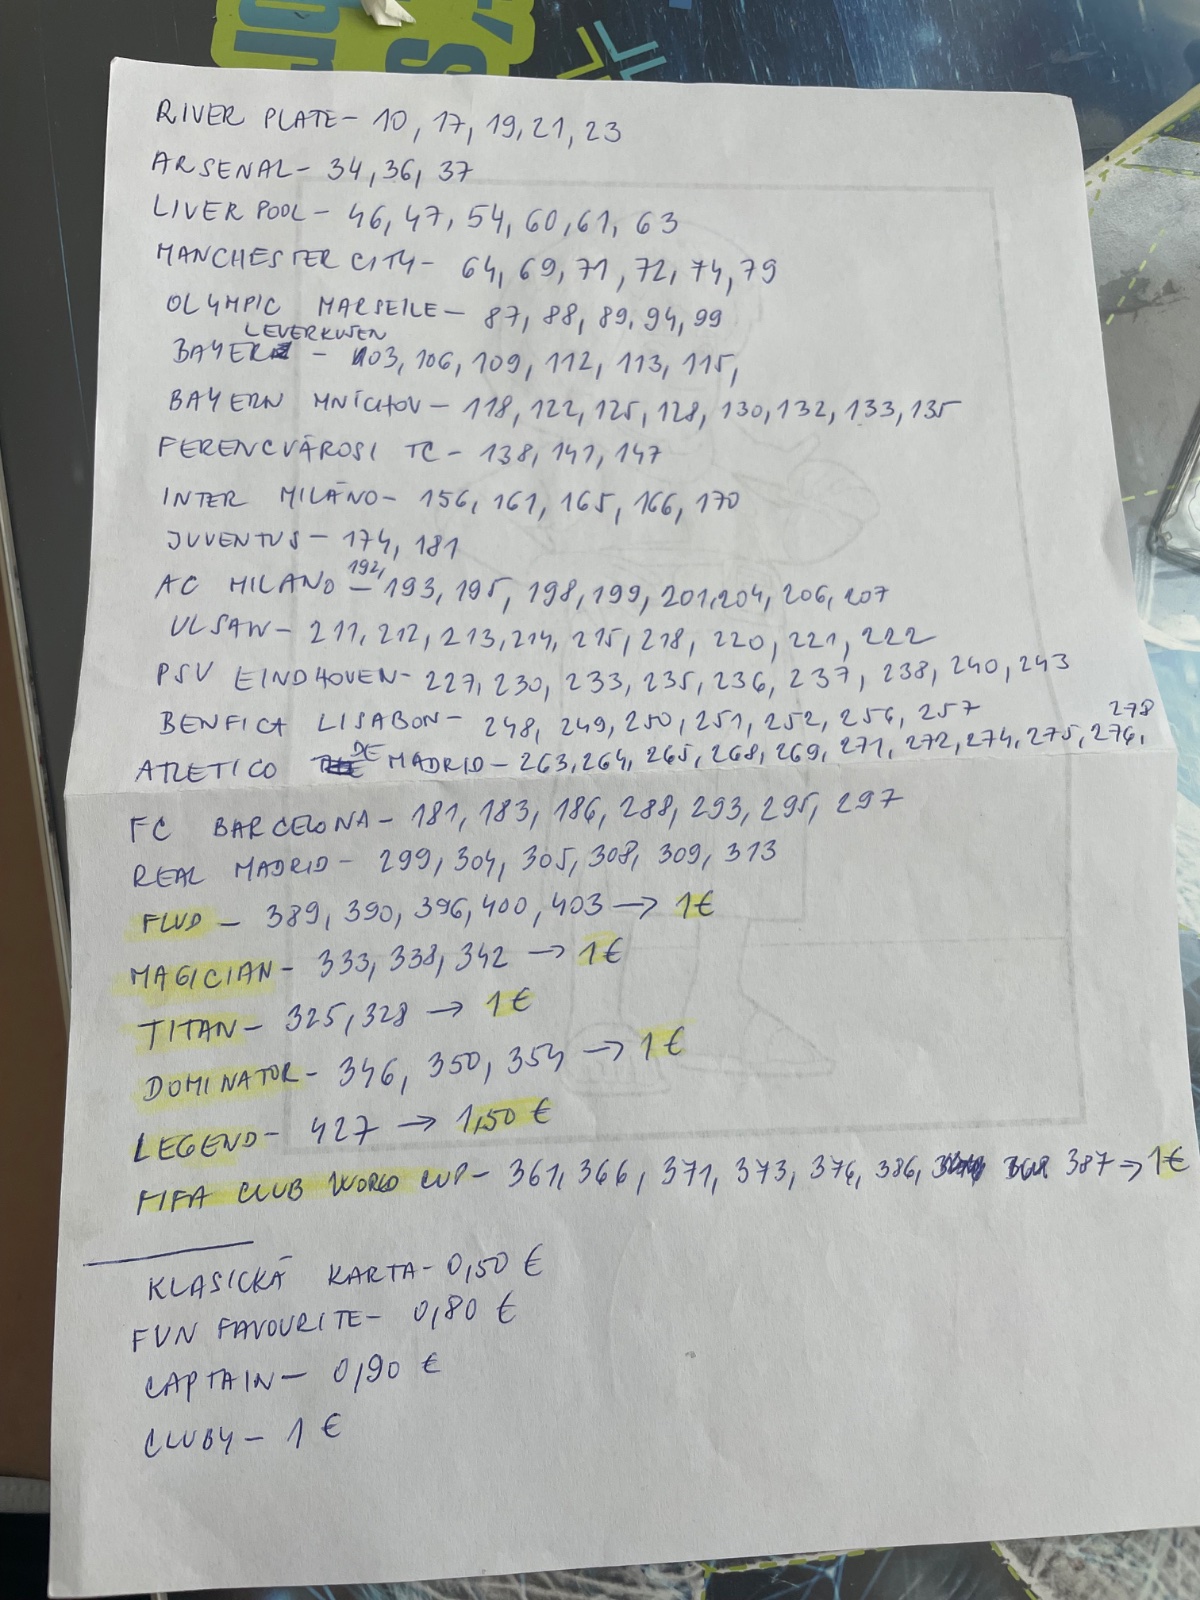 RIVER PLATE- 10, 17, 19, 21, 23
ARSENAL- 34, 36, 37
LIVERPOOL- 46, 47, 54, 60, 61, 63
MANCHESTER CITY- 64, 69, 71, 72, 74, 79
OLYMPIC MARSEILE- 87, 88, 89, 94, 99
BAYER LEVERKUSEN - 103, 106, 109, 112, 113, 115,
BAYERN MNÍCHOV- 118, 122, 125, 128, 130, 132, 133, 135
FERENCVÁROSI TC- 138, 141, 147
INTER MILÁNO- 156, 161, 165, 166, 170
JUVENTUS- 174, 181
AC MILANO - 192, 193, 195, 198, 199, 201, 204, 206, 207
ULSAN- 211, 212, 213, 214, 215, 218, 220, 221, 222
PSV EINDHOVEN- 227, 230, 233, 235, 236, 237, 238, 240, 243
BENFICA LISABON- 248, 249, 250, 251, 252, 256, 257
ATLETICO DE MADRID- 263, 264, 265, 268, 269, 271, 272, 274, 275, 276, 278
FC BARCELONA- 181, 183, 186, 288, 293, 295, 297
REAL MADRID- 299, 304, 305, 308, 309, 313
FLUD - 389, 390, 396, 400, 403 → 1€
MAGICIAN- 333, 338, 342 → 1€
TITAN- 325, 328 → 1€
DOMINATOR- 346, 350, 354 → 1€
LEGEND- 427 → 1,50 €
FIFA CLUB WORLD CUP- 361, 366, 371, 373, 376, 386, 387 → 1€
KLASICKÁ KARTA- 0,50 €
FUN FAVOURITE- 0,80 €
CAPTAIN- 0,90 €
CLUBY- 1 €